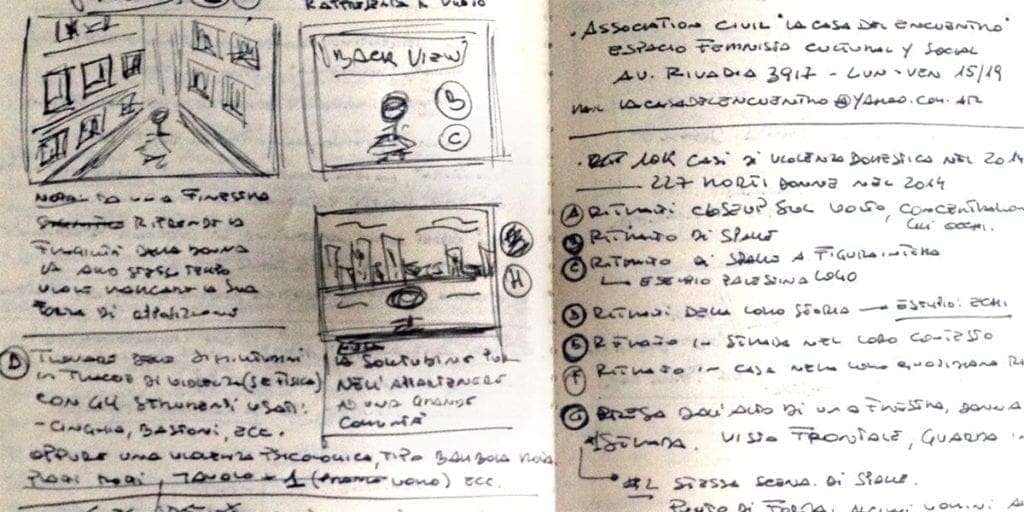 RAPPRESENTA IL VUOTO
BACK VIEW
B
C
UNA FINESTRA
RIPRENDE LA
FRAGILITÀ DELLA DONNA
LA SUA
FORZA DI OPPOSIZIONE
H
LA SOLITUDINE PUR
NELL'APPARTENERE
AD UNA GRANDE
COMUNITÀ
D TROVARE
IN TRACCE DI VIOLENZA (SE FISICA)
CON GLI STRUMENTI USATI:
- CINGHIA, BASTONI, ECC.
OPPURE UNA VIOLENZA PSICOLOGICA, TIPO BAMBOLA
TAVOLO + 1 ( UOMO) ECC.
· ASSOCIATION CIVIL "LA CASA DEL ENCUENTRO"
ESPACIO FEMINISTA CULTURAL Y SOCIAL
AV. RIVADIA 3917 - LUN - VEN 15/19
MAIL LACASADELENCUENTRO@YAHOO.COM.AR
10K CASI DI VIOLENZA DOMESTICA NEL 2014
227 MORTI DONNE NEL 2014
A RITRATTI CLOSEUP SUL VOLTO, CONCENTRANDO
GLI OCCHI.
B RITRATTO DI SPALLE
C RITRATTO DI SPALLE A FIGURA INTERA
ESEMPIO PALESTINA LOGO
D RITRATTI DELLA LORO STORIA → ESEMPIO: ECHI
E RITRATTO IN STRADA NEL LORO CONTESTO
F RITRATTO IN CASA NELLA LORO QUOTIDIANA
G RIPRESA DALL'ALTO DI UNA FINESTRA, DONNA
#1 STRADA. VISTA FRONTALE, GUARDA
#2 STESSA SCENA. DI SPALLE.
PUNTO DI FORZA: ALCUNI UOMINI